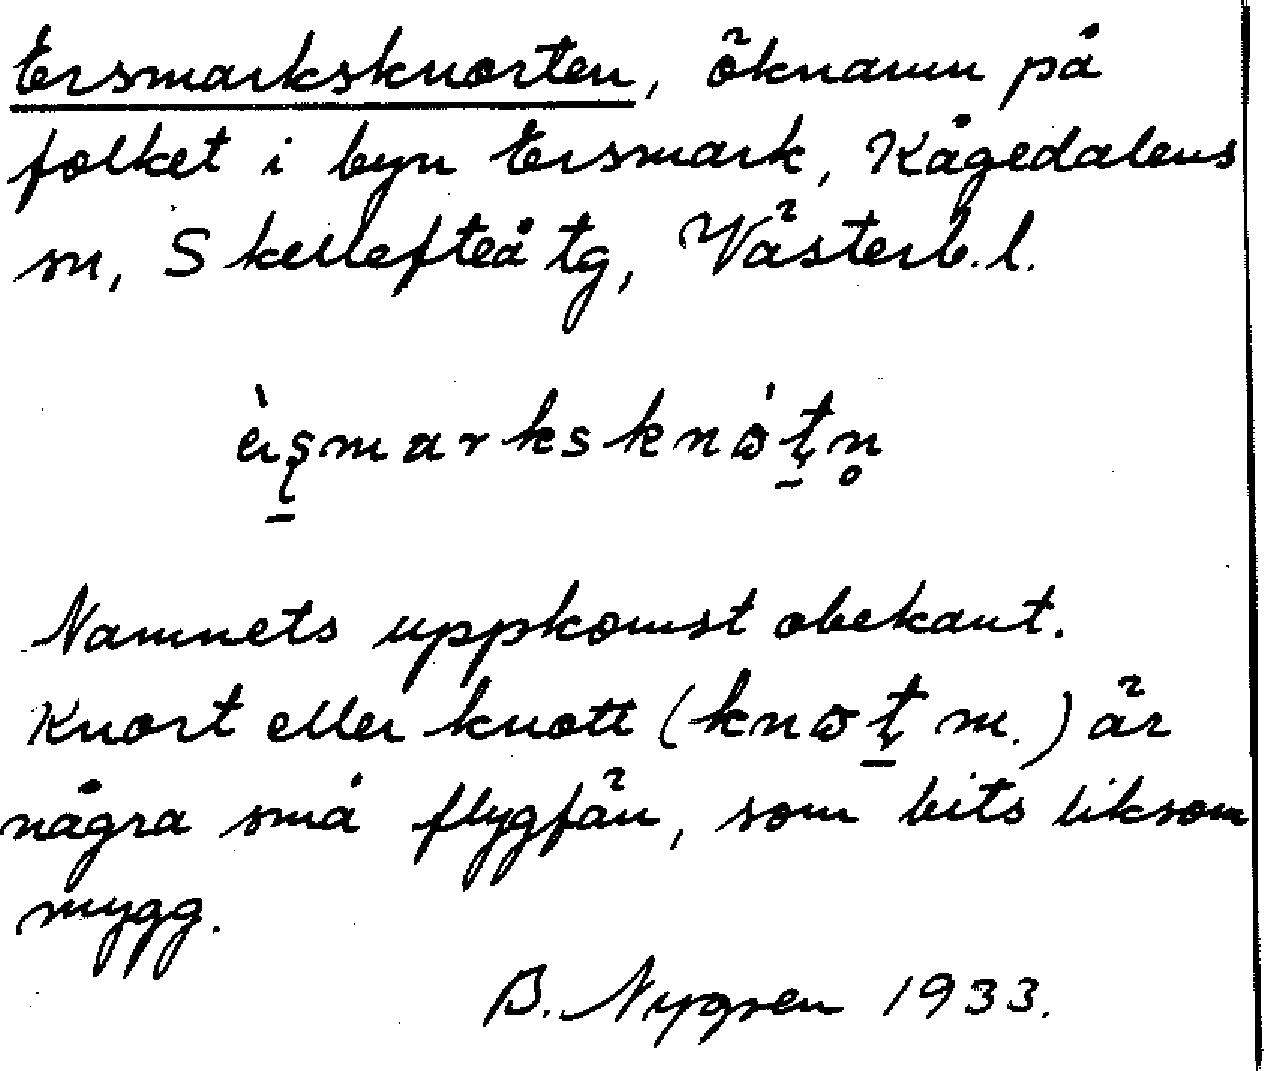 Ersmarksknorten, öknamn på
folket i byn Ersmark, Kågedalens
sn, Skellefteå tg, Västerb. l.
Namnets uppkomst obekant.
Knort eller knott (knɷt m.) är
några små flygfän, som bits liksom
mygg.
B. Nygren 1933.